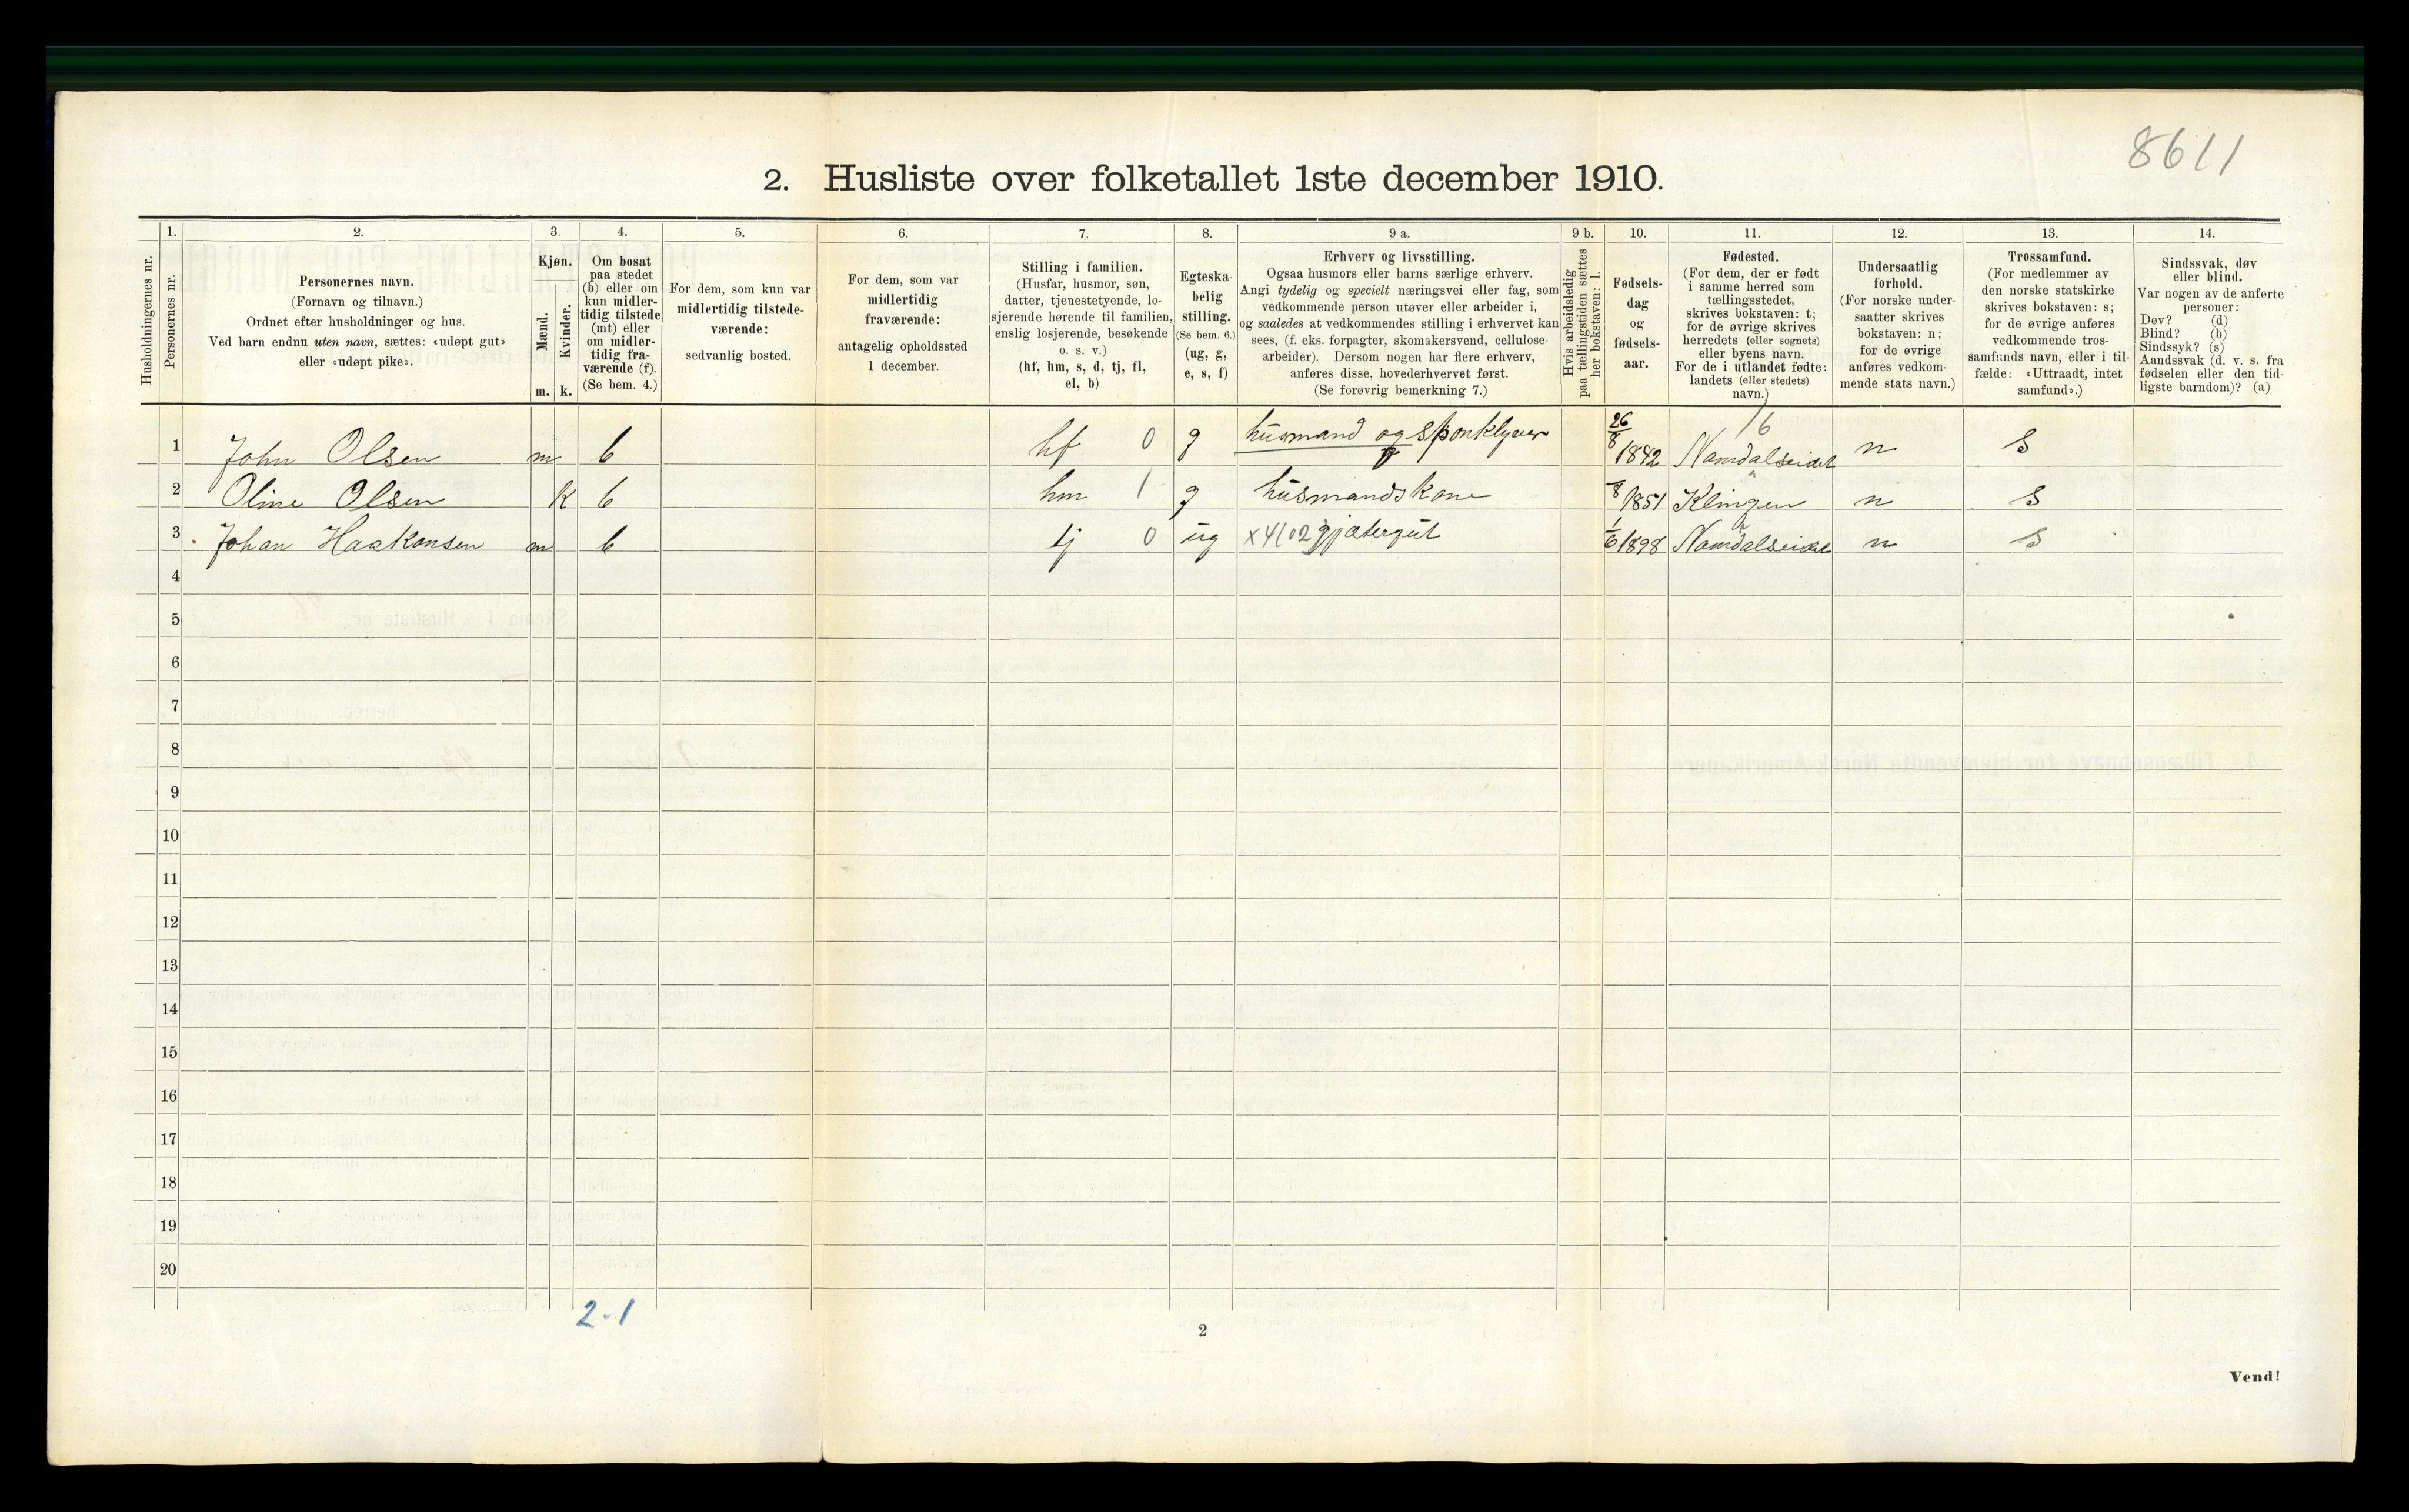 8611
2. Husliste over folketallet 1ste december 1910.
Husholdningernes nr.
1.
Personernes nr.
2.
Personernes navn.
(Fornavn og tilnavn.)
Ordnet efter husholdninger og hus.
Ved barn endnu uten navn, sættes: «udøpt gut»
eller «udøpt pike».
3.
Kjøn.
Mænd.
Kvinder.
m. k.
4.
Om bosat
paa stedet
(b) eller om
kun midler-
tidig tilstede
(mt) eller
om midler-
tidig fra-
værende (f).
(Se bem. 4.)
5.
For dem, som kun var
midlertidig tilstede-
værende:
sedvanlig bosted.
6.
For dem, som var
midlertidig
fraværende:
antagelig opholdssted
1 december.
7.
Stilling i familien.
(Husfar, husmor, søn,
datter, tjenestetyende, lo-
sjerende hørende til familien,
enslig losjerende, besøkende
o. s. v.)
(hf, hm, s, d, tj, fl,
el, b)
8.
Egteska-
belig
stilling.
(Se bem. 6.)
(ug, g,
e, s, f)
9 a.
Erhverv og livsstilling.
Ogsaa husmors eller barns særlige erhverv.
Angi tydelig og specielt næringsvei eller fag, som
vedkommende person utøver eller arbeider i,
og saaledes at vedkommendes stilling i erhvervet kan
sees, (f. eks. forpagter, skomakersvend, cellulose-
arbeider). Dersom nogen har flere erhverv,
anføres disse, hovederhvervet først.
(Se forøvrig bemerkning 7.)
9 b.
Hvis arbeidsledig
paa tællingstiden sættes
her bokstaven: l.
10.
Fødsels-
dag
og
fødsels-
aar.
11.
Fødested.
(For dem, der er født
i samme herred som
tællingsstedet,
skrives bokstaven: t;
for de øvrige skrives
herredets (eller sognets)
eller byens navn.
For de i utlandet fødte:
landets (eller stedets)
navn.)
12.
Undersaatlig
forhold.
(For norske under-
saatter skrives
bokstaven: n;
for de øvrige
anføres vedkom-
mende stats navn.)
13.
Trossamfund.
(For medlemmer av
den norske statskirke
skrives bokstaven: s;
for de øvrige anføres
vedkommende tros-
samfunds navn, eller i til-
fælde: «Uttraadt, intet
samfund».)
14.
Sindssvak, døv
eller blind.
Var nogen av de anførte
personer:
Døv? (d)
Blind? (b)
Sindssyk? (s)
Aandssvak (d. v. s. fra
fødselen eller den tid-
ligste barndom)? (a)
1 John Olsen m b hf 0 g husmand og sponkløver 26/8 1842 16 Namdalseidet n s
2 Oline Olsen k b hm 1 g husmandskone 1851 Klingen n s
3 Johan Haakonsen m b tj 0 ug x4102 gjætergut 1/6 1898 Namdalseidet n s
4
5
6
7
8
9
10
11
12
13
14
15
16
17
18
19
20
2-1
2
Vend!